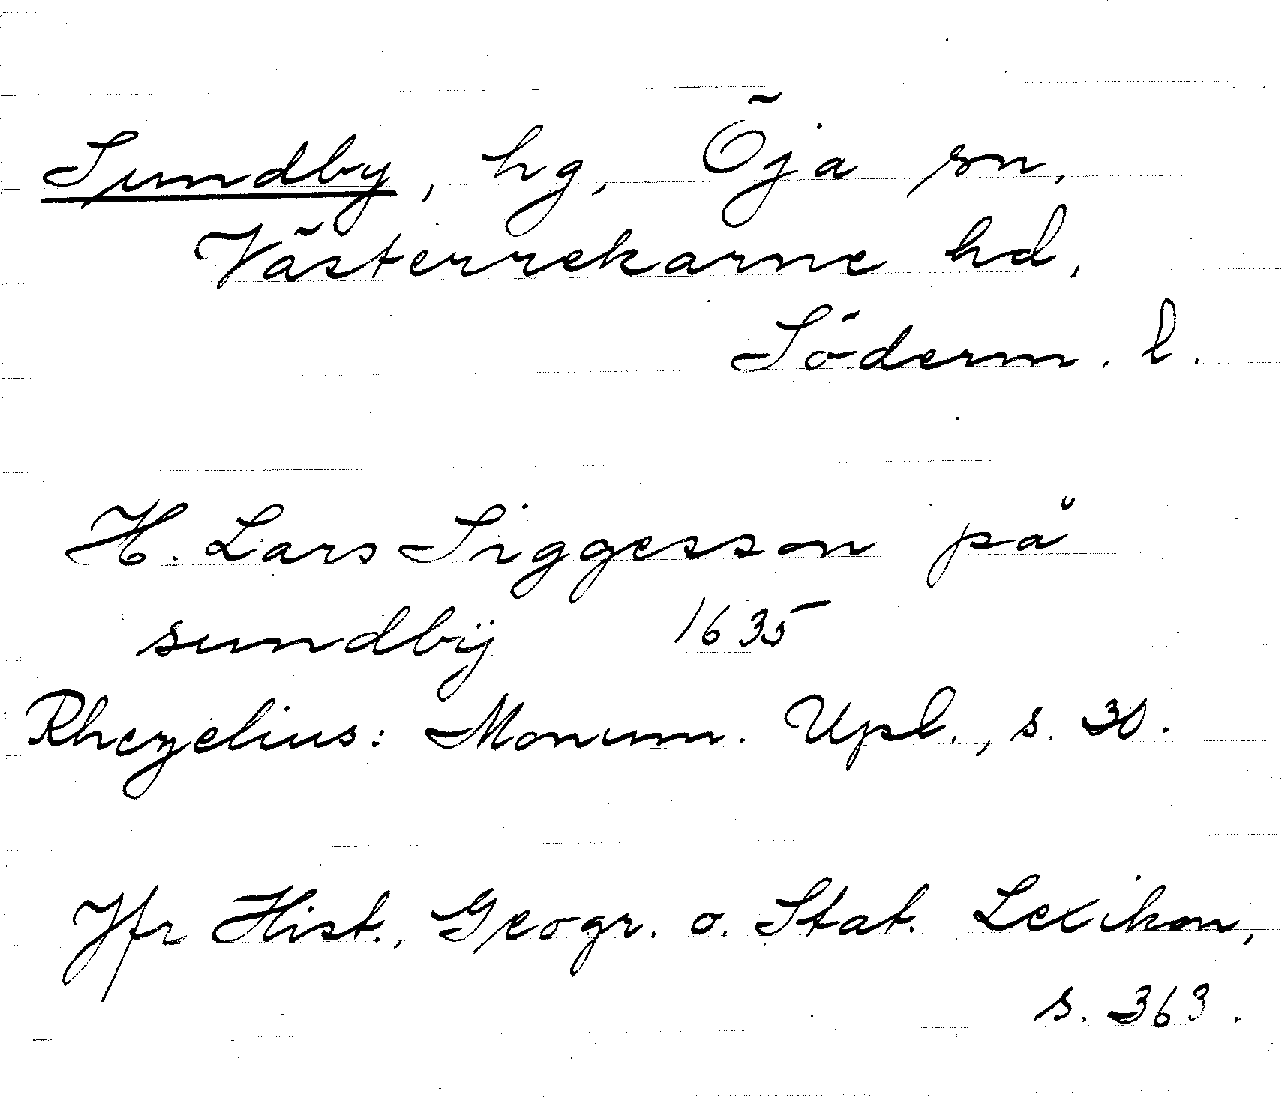 Sundby, hg, Öja sn,
Västerrekarne hd,
Söderm. l.
H. Lars Siggesson på
sundbÿ 1635
Rhezelius: Monum. Upl., s. 30.
Jfr Hist., Geogr. o. Stat. Lexikon,
s. 363.